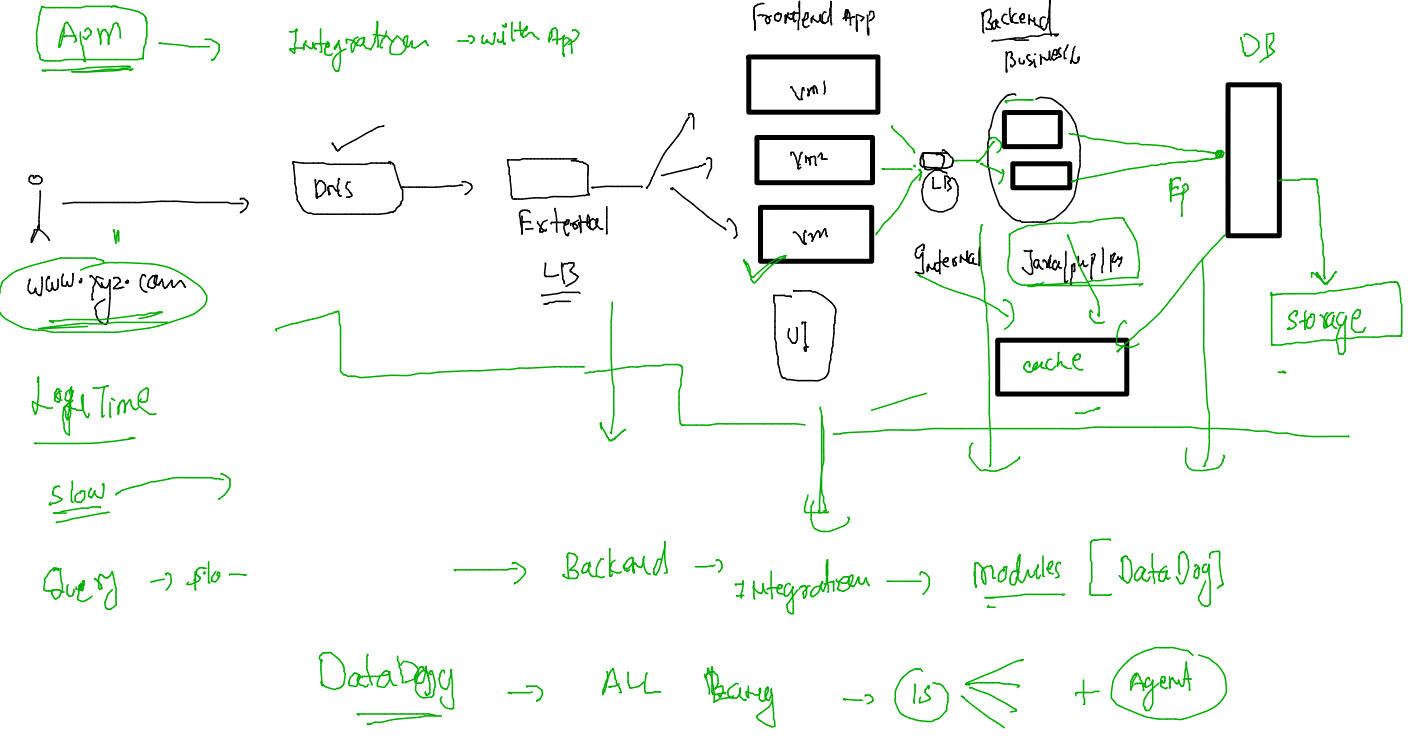 Apm
Integration → with App
Frontend App
Backend
Business
DB
vm1
vm2
vm
DNS
External
LB
LB
Internal
Java/php/py
Ep
www.xyz.com
UI
cache
storage
Time
slow
Query →
→ Backend → Integration → modules [DataDog]
→ ALL → + Agent